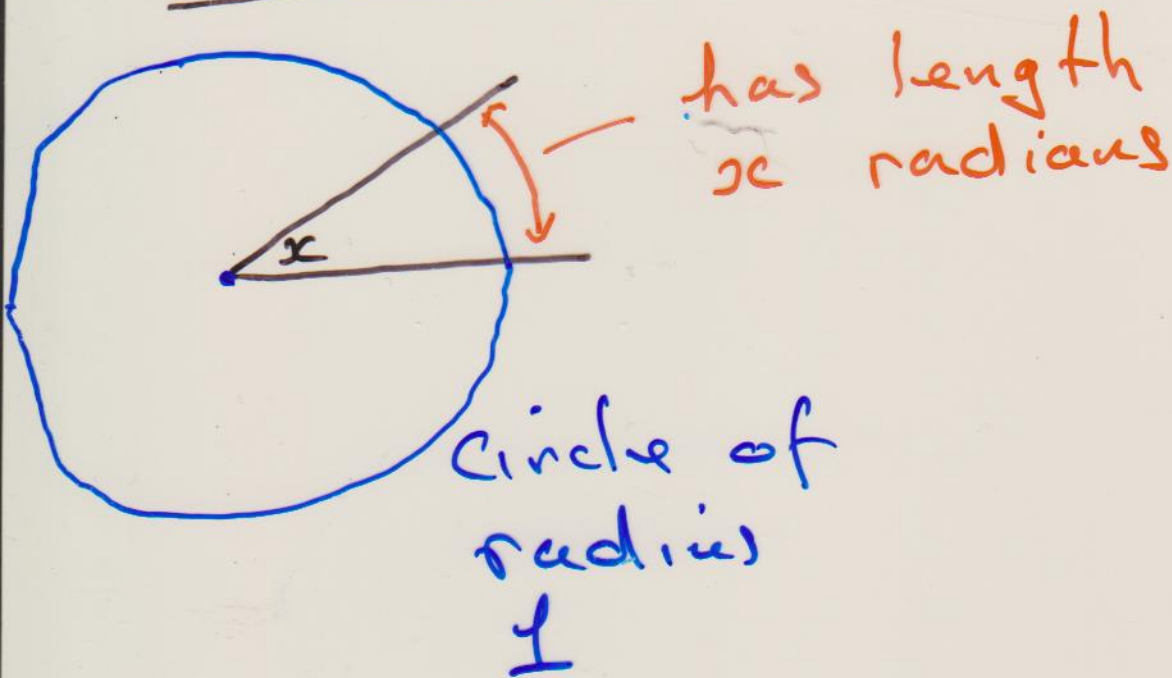 has length
x radians
x
Circle of
radius
1